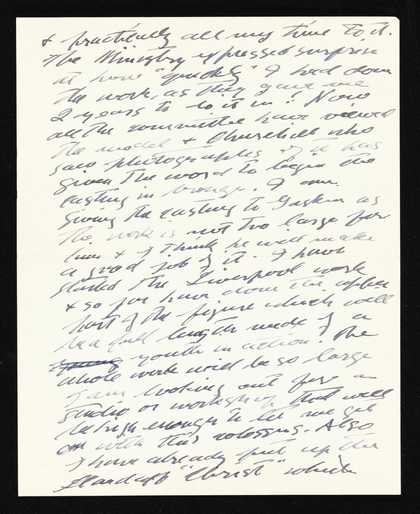 & practically all my time to it.
The Ministry expressed surprise
at how "quickly" I had done
the work, as they gave me
2 years to do it in! Now
all the committee have viewed
the model & Churchill who
saw photographs of it has
given the word to begin the
casting in bronze. I am
giving the casting to Gaskin as
the work is not too large for
him & I think he will make
a good job of it. I have
started the Liverpool work
& so far have done the upper
part of the figure which will
be a full length nude of a
young youth in action! The
whole work will be so large
I am looking out for a
studio or workshop that will
be high enough to let me get
on with this colossus. Also
I have already put up the
Llandaff "Christ" which